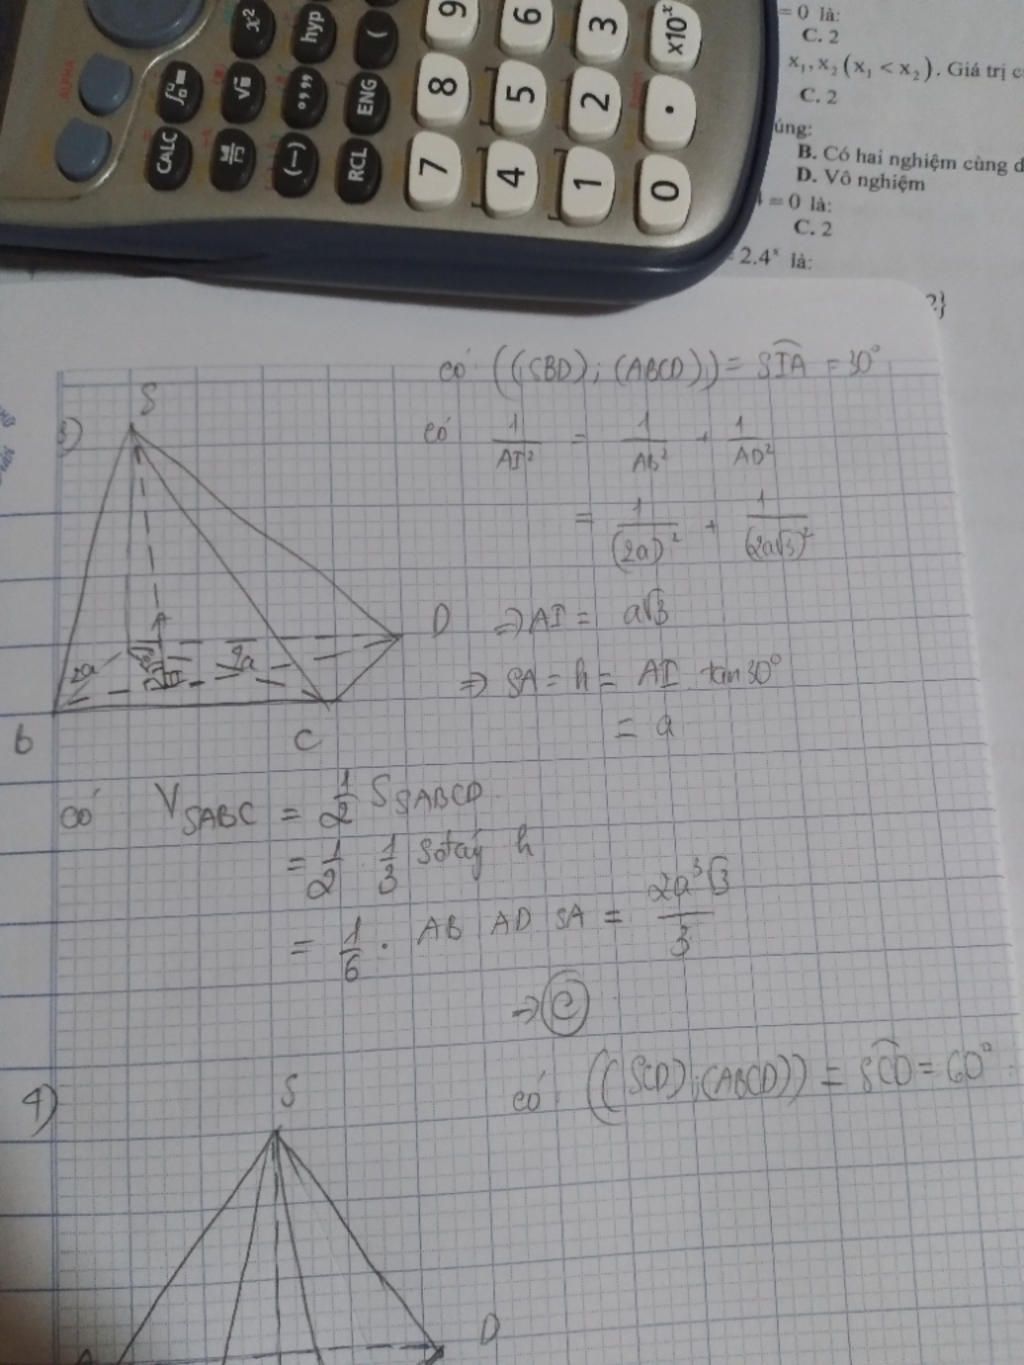 x²
hyp
(
9
6
3
×10ˣ
CALC
√■
°'"
ENG
8
5
2
•
(−)
RCL
7
4
1
0
ALPHA
= 0 là:
C. 2
x₁, x₂ (x₁ < x₂). Giá trị
C. 2
úng:
B. Có hai nghiệm cùng
D. Vô nghiệm
= 0 là:
C. 2
2.4ˣ là:
2}
có ((SBD); (ABCD)) = SIA = 30°
3)
S
có 1/AI² = 1/AB² + 1/AD²
= 1/(2a)² + 1/(2a√3)²
D
⇒ AI = a√3
2a
⇒ SA = h = AI tan 30°
= a
B
C
có V_SABC = 1/2 S_SABCD
= 1/2 · 1/3 Sđáy h
= 1/6 · AB AD SA = 2a³√3/3
⇒ C
4)
S
có ((SCD); (ABCD)) = SCD = 60°
D